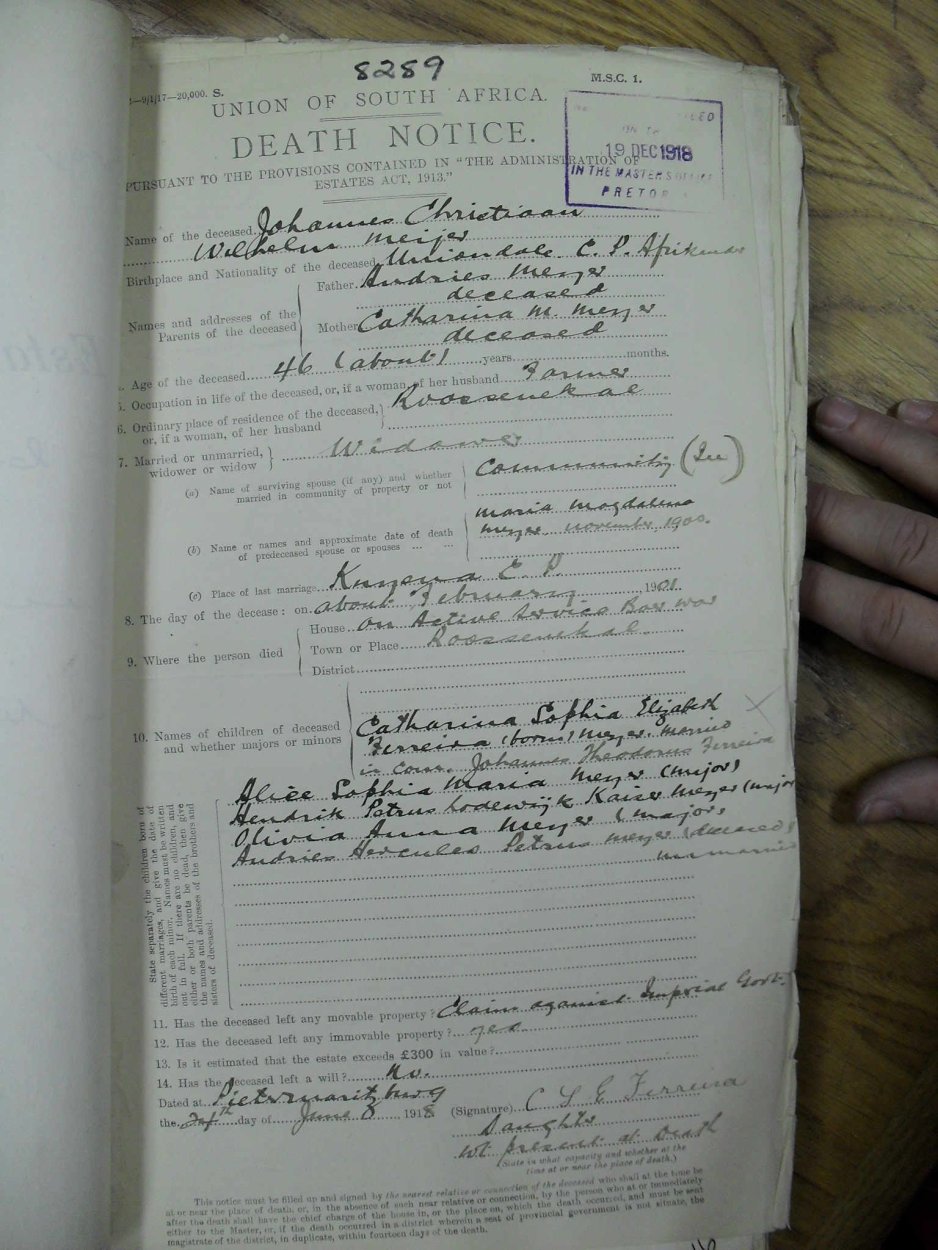 8289
M.S.C. 1.
—9/1/17—20,000. S.
UNION OF SOUTH AFRICA.
DEATH NOTICE.
PURSUANT TO THE PROVISIONS CONTAINED IN "THE ADMINISTRATION OF
ESTATES ACT, 1913."
19 DEC 1918
IN THE MASTERS OFFICE
PRETOR
Name of the deceased Johannes Christiaan
Wilhelm Meijer
Birthplace and Nationality of the deceased Uniondale C. P. Afrikaner
Names and addresses of the Parents of the deceased
Father Andries Meyer
deceased
Mother Catharina M. Meyer
deceased
Age of the deceased 46 (about) years months.
5. Occupation in life of the deceased, or, if a woman, of her husband Farmer
6. Ordinary place of residence of the deceased, or, if a woman, of her husband Roossenekal
7. Married or unmarried, widower or widow Widower
(a) Name of surviving spouse (if any) and whether married in community of property or not
Community (In)
(b) Name or names and approximate date of death of predeceased spouse or spouses ... ...
Maria Magdalena
Meyer november 1900.
(c) Place of last marriage Knysna C. P
8. The day of the decease: on about February 1901
9. Where the person died
House on Active Service Boer war
Town or Place Roossenekal.
District
10. Names of children of deceased and whether majors or minors
Catharina Sophia Elizabeth
Ferreira (born) Meyer. married
in com. Johannes Theodorus Ferreira
Alice Sophia Maria Meyer (major)
Hendrik Petrus Lodewijk Kaiser Meyer (major
Olivia Anna Meyer (major)
Andries Hercules Petrus Meyer (deceased)
unmarried
State separately the children born of
different marriages, and give the date of
birth of each minor. Names must be written
out in full. If there are no children, and
either or both parents be dead, then give
the names and addresses of the brothers and
sisters of deceased.
11. Has the deceased left any movable property? Claim against Imperial Govt.
12. Has the deceased left any immovable property? yes
13. Is it estimated that the estate exceeds £300 in value?
14. Has the deceased left a will? No.
Dated at Pietermaritzburg
the 24th day of June 1918 (Signature) C S E Ferreira
Daughter
not present at Death
(State in what capacity and whether at the
time at or near the place of death.)
This notice must be filled up and signed by the nearest relative or connection of the deceased who shall at the time be
at or near the place of death, or, in the absence of such near relative or connection, by the person who at or immediately
after the death shall have the chief charge of the house in, or the place on, which the death occurred, and must be sent
either to the Master, or, if the death occurred in a district wherein a seat of provincial government is not situate, the
magistrate of the district, in duplicate, within fourteen days of the death.